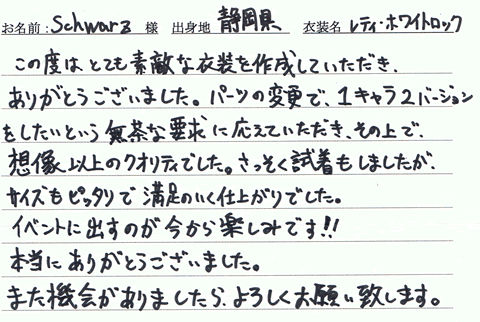 お名前：Schwarz 様 出身地 静岡県 衣装名 レティ・ホワイトロック
この度はとても素敵な衣装を作成していただき、
ありがとうございました。パーツの変更で、1キャラ2バージョン
をしたいという無茶な要求に応えていただき、その上で、
想像以上のクオリティでした。さっそく試着もしましたが、
サイズもピッタリで満足のいく仕上がりでした。
イベントに出すのが今から楽しみです!!
本当にありがとうございました。
また機会がありましたら、よろしくお願い致します。